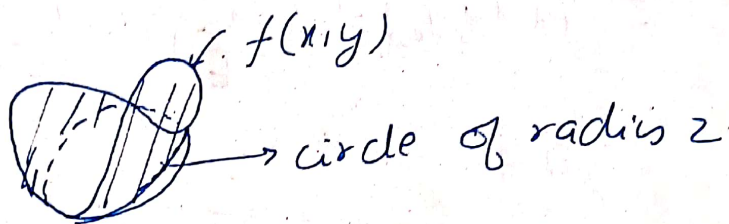 f(x,y)
circle of radius 2